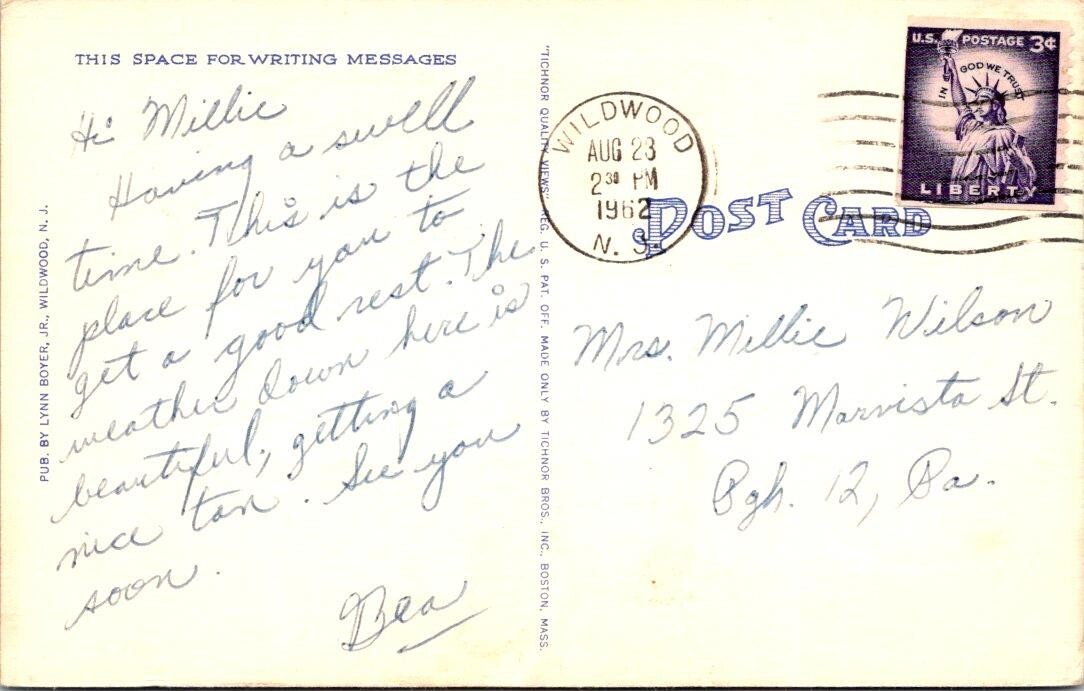 THIS SPACE FOR WRITING MESSAGES
Hi Millie
Having a swell
time. This is the
place for you to
get a good rest. The
weather down here is
beautiful, getting a
nice tan. See you
soon.
Bea
PUB. BY LYNN BOYER, JR., WILDWOOD, N. J.
"TICHNOR QUALITY VIEWS" REG. U. S. PAT. OFF. MADE ONLY BY TICHNOR BROS., INC., BOSTON, MASS.
WILDWOOD
AUG 23
2³⁰ PM
1962
N. J.
U.S. POSTAGE 3¢
IN GOD WE TRUST
LIBERTY
POST CARD
Mrs. Millie Wilson
1325 Marvista St.
Pgh. 12, Pa.